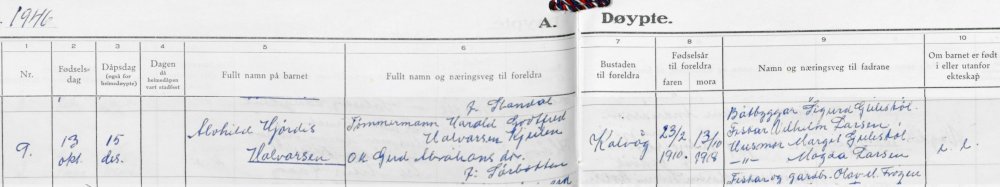 1946
A.
Døypte.
1
2
3
4
5
6
7
8
9
10
Nr.
Fødsels-
dag
Dåpsdag
(også for
heimedøypte)
Dagen
då
heimedåpen
vart stadfest
Fullt namn på barnet
Fullt namn og næringsveg til foreldra
Bustaden
til foreldra
Fødselsår
til foreldra
faren
mora
Namn og næringsveg til fadrane
Om barnet er født
i eller utanfor
ekteskap
9.
13
okt.
15
des.
Alvhild Hjørdis
Halvorsen
f. Standal
Tømmermann Harald Godtfred
Halvorsen
o.k. Gerd Abrahams dr.
f.
Kalvåg
23/2
1910.
13/10
1918
Båtbyggar Sigurd
Fiskar Vilhelm Larsen
Husmor Margit
-"- Magda Larsen
i. e.
Fiskar og gardbr. Olav